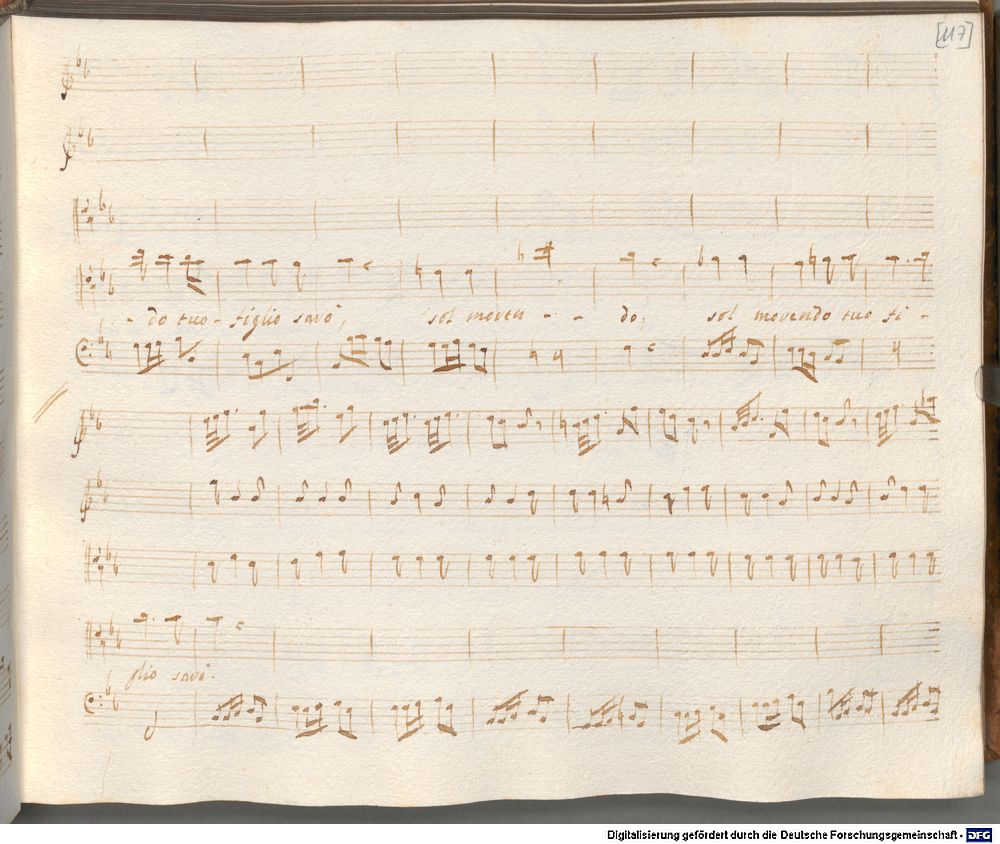 [117]
- do tuo - figlio sarò, sol moren - - do, sol morendo tuo fi -
glio sarò.
Digitalisierung gefördert durch die Deutsche Forschungsgemeinschaft - DFG